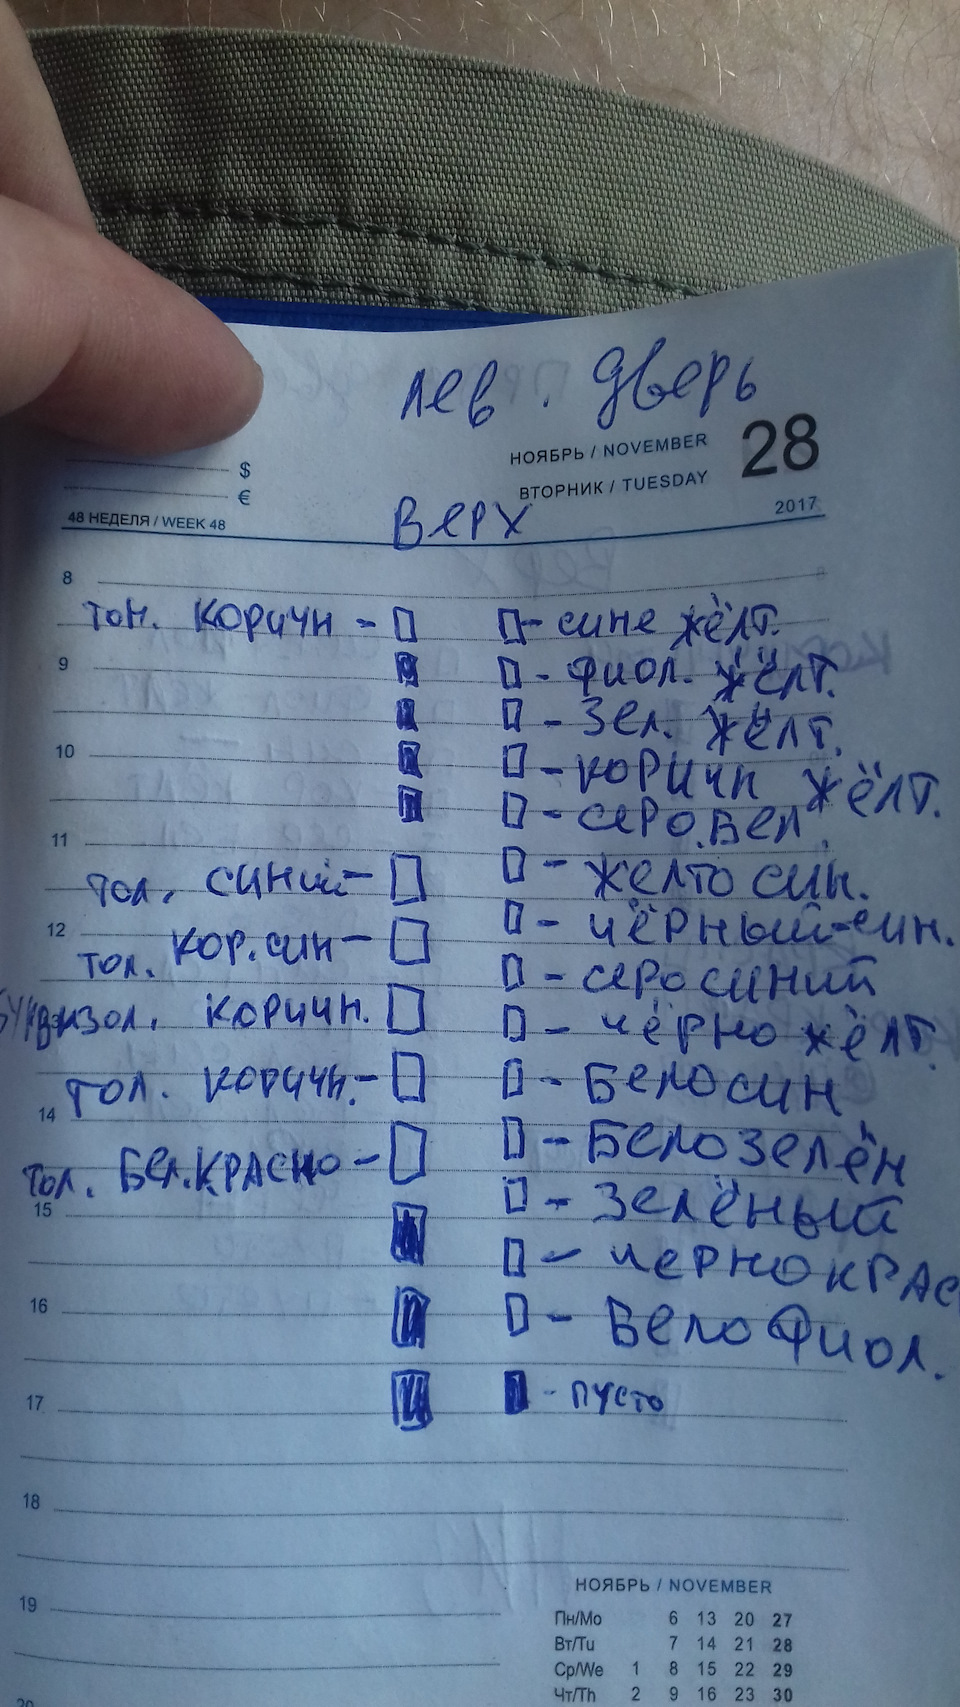 лев. дверь
НОЯБРЬ / NOVEMBER 28
$
ВТОРНИК / TUESDAY
€
48 НЕДЕЛЯ / WEEK 48
2017
Верх
8
тон. коричн - - сине жёлт.
9
- фиол. жёлт.
- Зел. жёлт.
10
- коричн жёлт.
- серо.бел.
11
тол. синий - - желто син.
12
- чёрный-син.
тол. кор.син -
- серосиний
коричн.
- чёрно жёлт
тол. коричн. - - Белосин
14
- Белозелён
тол. Бел.красно -
15
- Зелёный
- чернокрас
16
- Бело фиол.
17
- пусто
18
19
НОЯБРЬ / NOVEMBER
Пн/Mo 6 13 20 27
Вт/Tu 7 14 21 28
Ср/We 1 8 15 22 29
Чт/Th 2 9 16 23 30
20